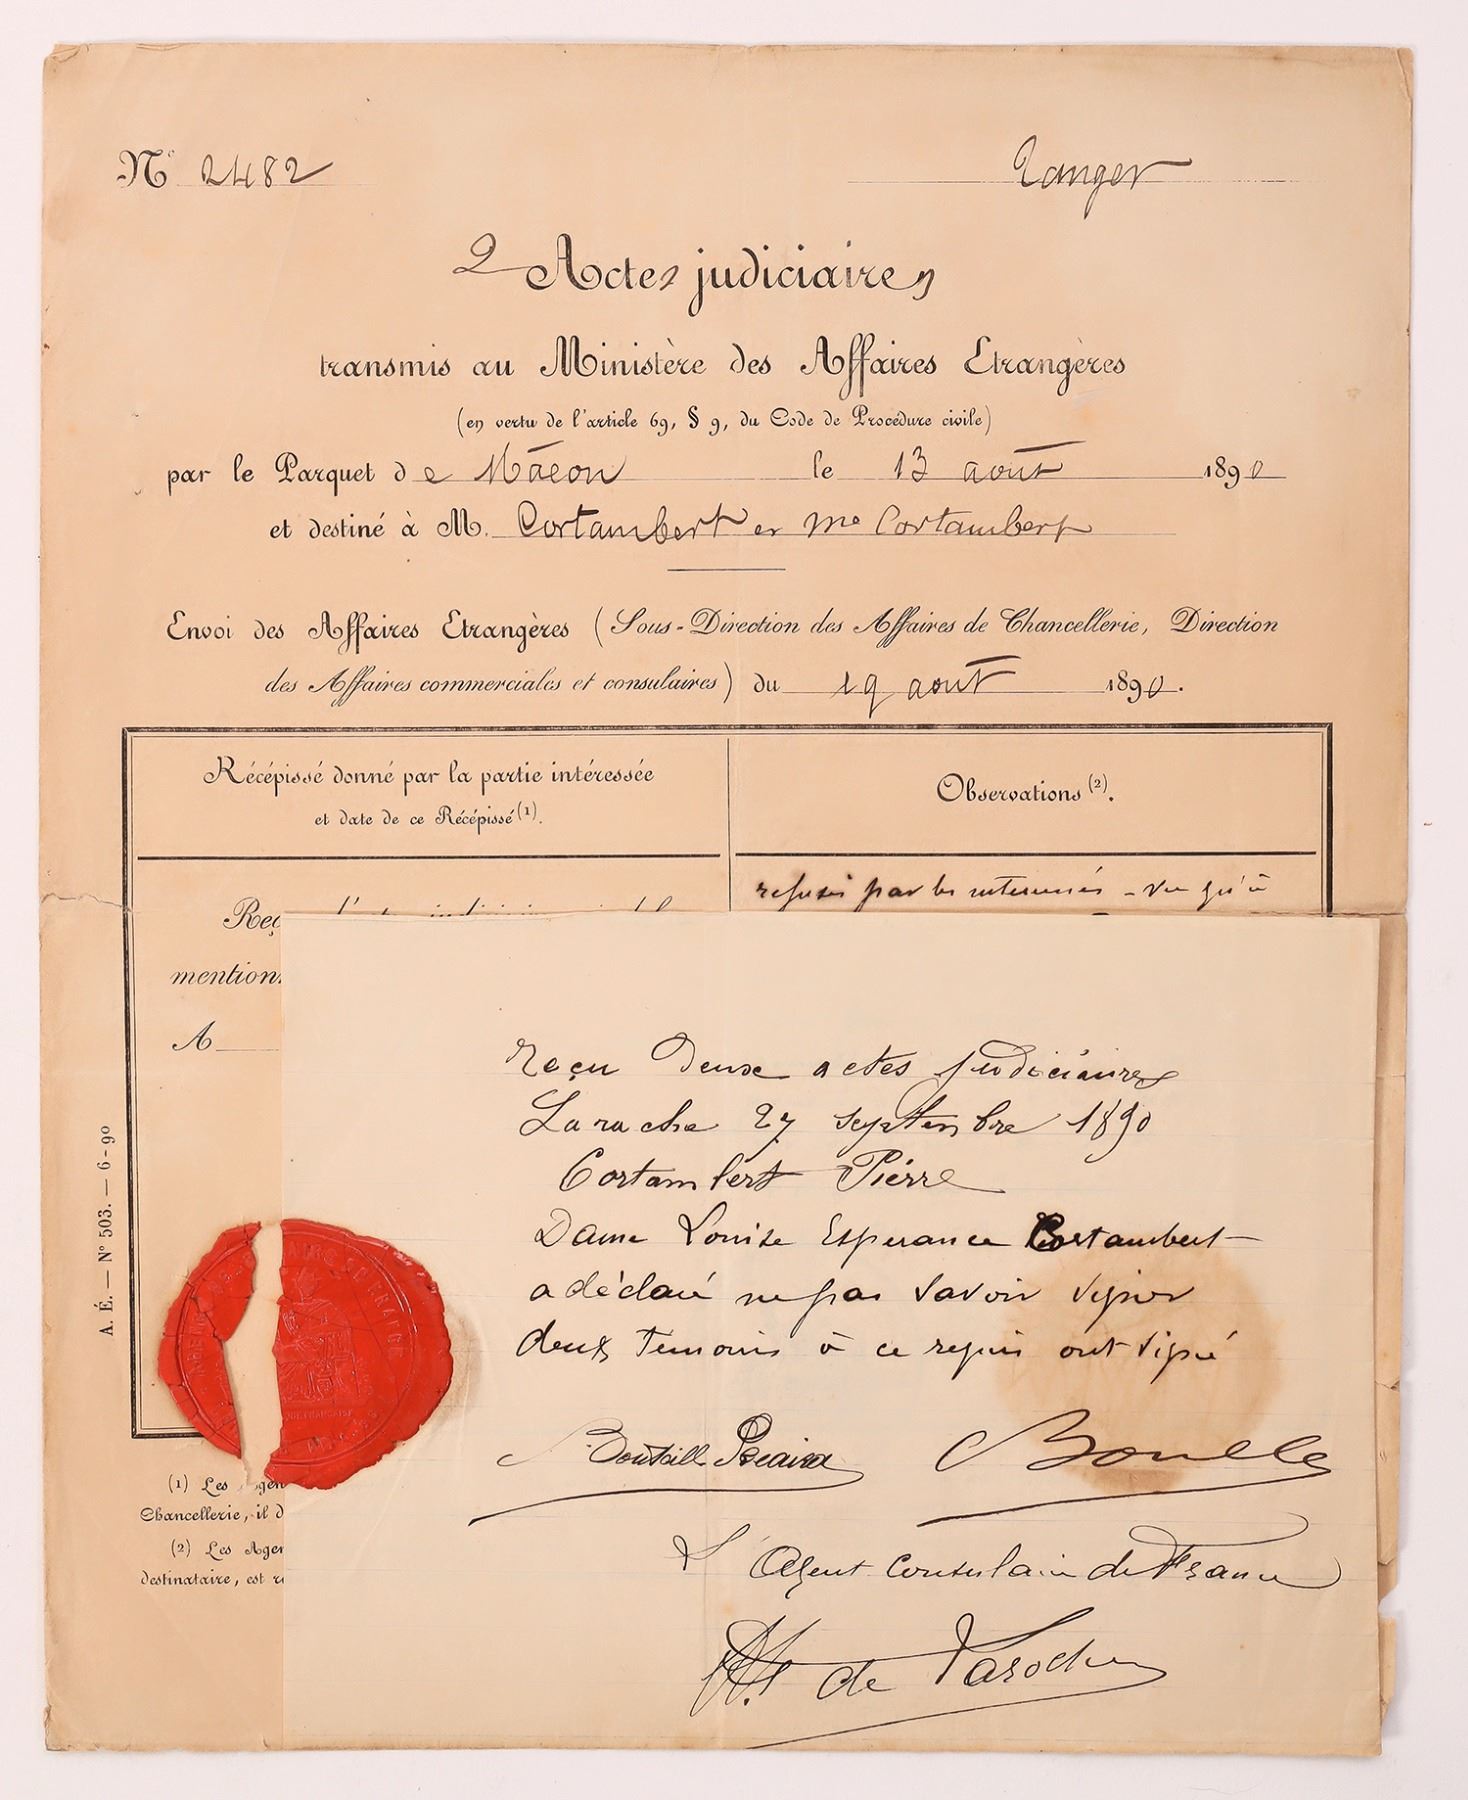 N° 2482
Tanger
2 Actes judiciaires
transmis au Ministère des Affaires Etrangères
(en vertu de l'article 69, § 9, du Code de Procédure civile)
par le Parquet de Mâcon le 13 août 1890
et destiné à M. Cortambert et Me Cortambert
Envoi des Affaires Etrangères (Sous-Direction des Affaires de Chancellerie, Direction
des Affaires commerciales et consulaires) du 19 août 1890.
Récépissé donné par la partie intéressée
et date de ce Récépissé (1).
Observations (2).
refusés par les intéressés - vu qu'à
Reç
mention
A
reçu deux actes judiciaires
Larache 27 septembre 1890
Cortambert Pierre
Dame Louise Esperance Cortambert
a déclaré ne pas savoir signer
deux temoins à ce requis ont signé
L'Agent Consulaire de France
de Laroche
A. É. — N° 503. — 6-90
(1) Les Agen
Chancellerie, il d
(2) Les Agen
destinataire, est r